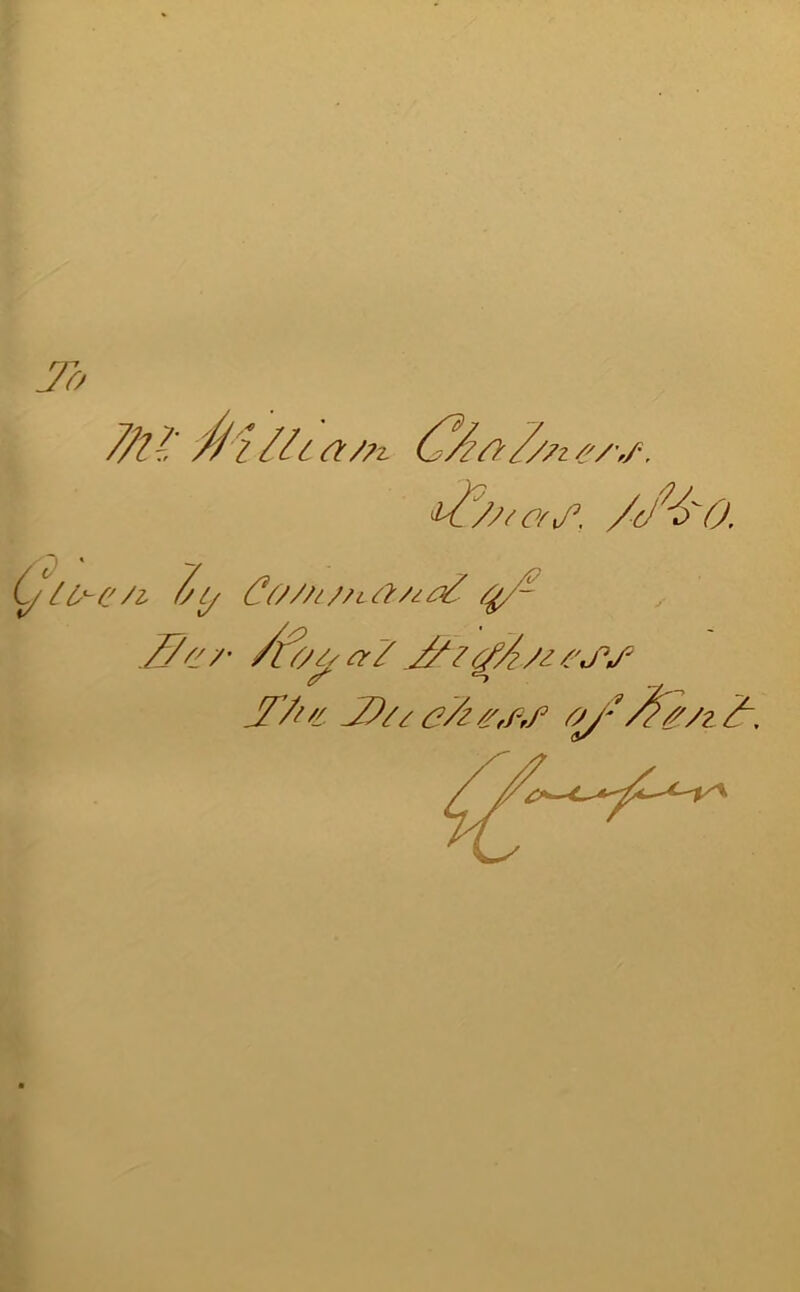 To
Mr. William Chalmers.
Xmas. 1880.
Given by Command of
Her Royal Highness
The Duchess of Kent.